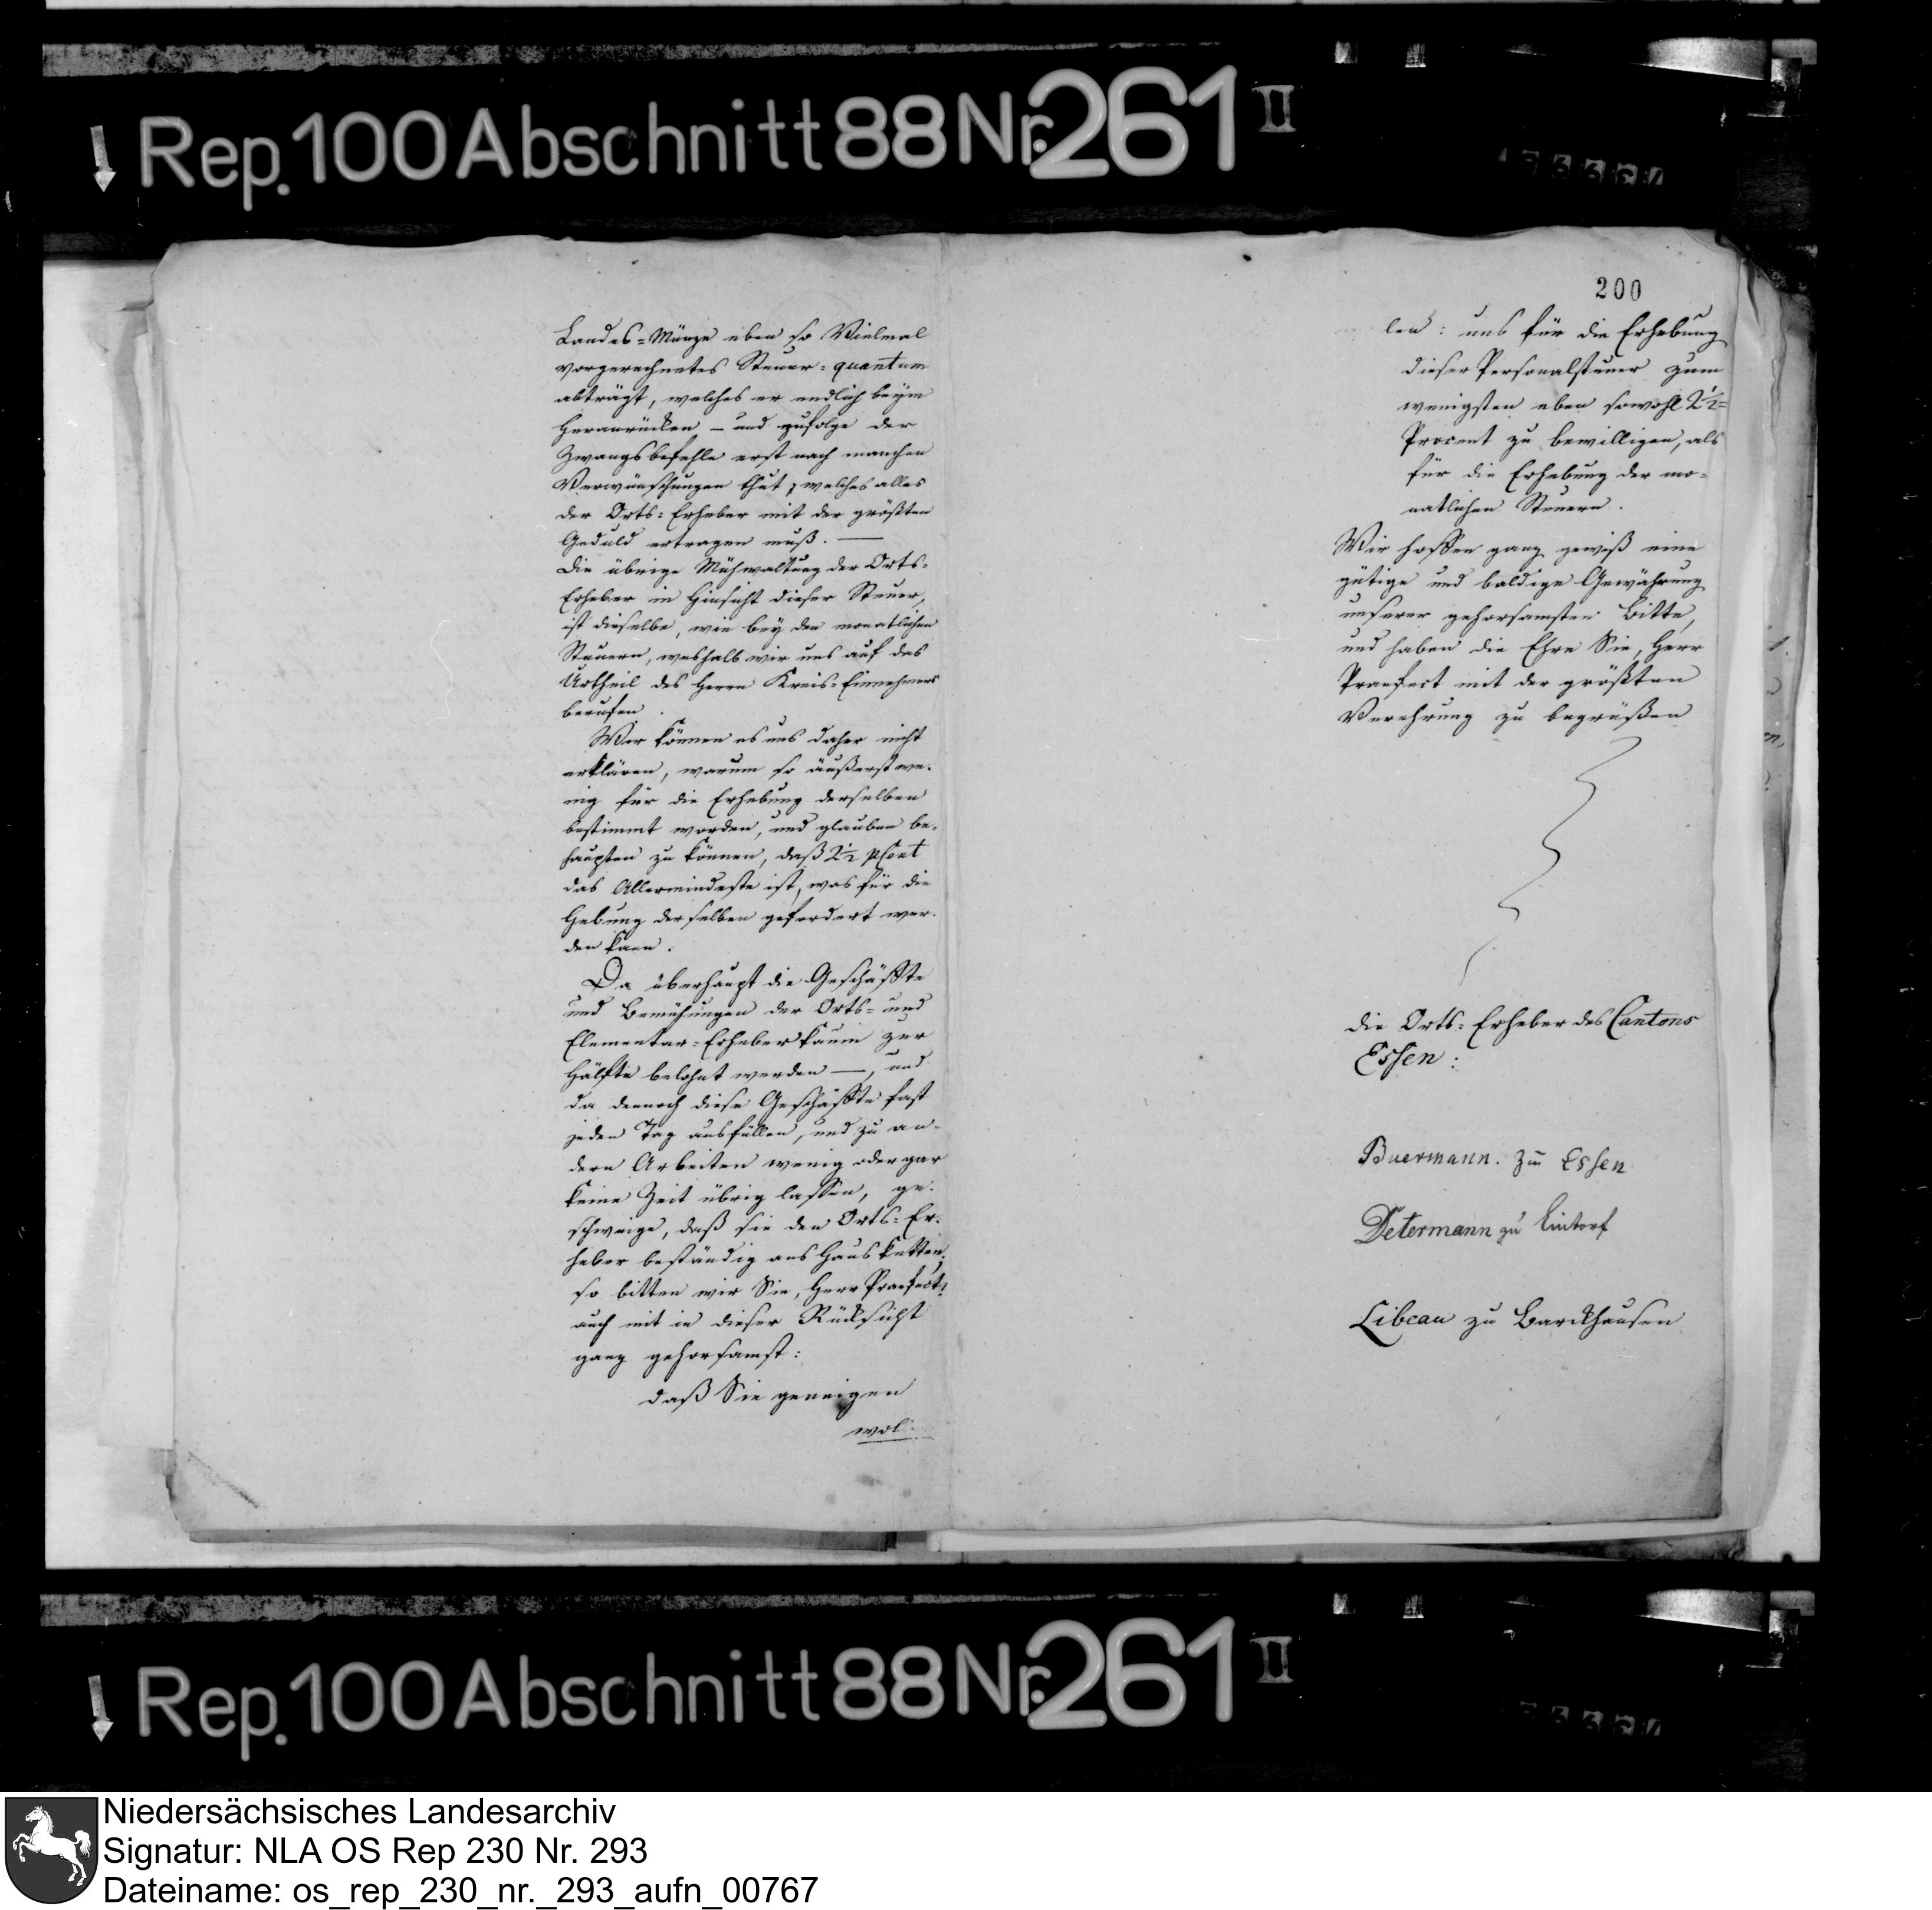 Rep. 100 Abschnitt 88 Nr. 261 II
Landes=Münze eben so Vielmal
vorgerechnetes Steuer=quantum
abträgt, welches er endlich beym
Heranrücken – und zufolge der
Zwangsbefehle erst nach manchen
Verwünschungen thut, welches alles
der Orts=Erheber mit der größten
Geduld ertragen muß. —
Die übrige Mühwaltung der Orts=
Erheber in Hinsicht dieser Steuer,
ist dieselbe, wie bey den monatlichen
Steuern, weshalb wir uns auf das
Urtheil des Herrn Kreis=Einnehmers
berufen.
Wir können es uns daher nicht
erklären, warum so äußerst we=
nig für die Erhebung derselben
bestimmt worden, und glauben be=
haupten zu können, daß 2½ pCent
das Allermindeste ist, was für die
Hebung derselben gefordert wer=
den kann.
Da überhaupt die Geschäffte
und Bemühungen der Orts= und
Elementar=Erheber kaum zur
Hälfte belohnt werden —, und
da dennoch diese Geschäffte fast
jeden Tag ausfüllen, und zu an=
dern Arbeiten wenig oder gar
keine Zeit übrig lassen, ge=
schweige, daß sie den Orts=Er=
heber beständig ans Haus ketten;
so bitten wir Sie, Herr Praefect!
auch mit in dieser Rücksicht
ganz gehorsamst:
daß Sie geneigen
wol
200
len: uns für die Erhebung
dieser Personalsteuer zum
wenigsten eben sowohl 2½=
Procent zu bewilligen, als
für die Erhebung der mo=
natlichen Steuern.
Wir hoffen ganz gewiß eine
gütige und baldige Gewährung
unserer gehorsamsten Bitte,
und haben die Ehre Sie, Herr
Praefect mit der größten
Verehrung zu begrüßen
die Orts=Erheber des Cantons
Essen:
Buermann. zu Essen
Determann zu Lintorf
Libeau zu Barckhausen
Rep. 100 Abschnitt 88 Nr. 261 II
Niedersächsisches Landesarchiv
Signatur: NLA OS Rep 230 Nr. 293
Dateiname: os_rep_230_nr._293_aufn_00767